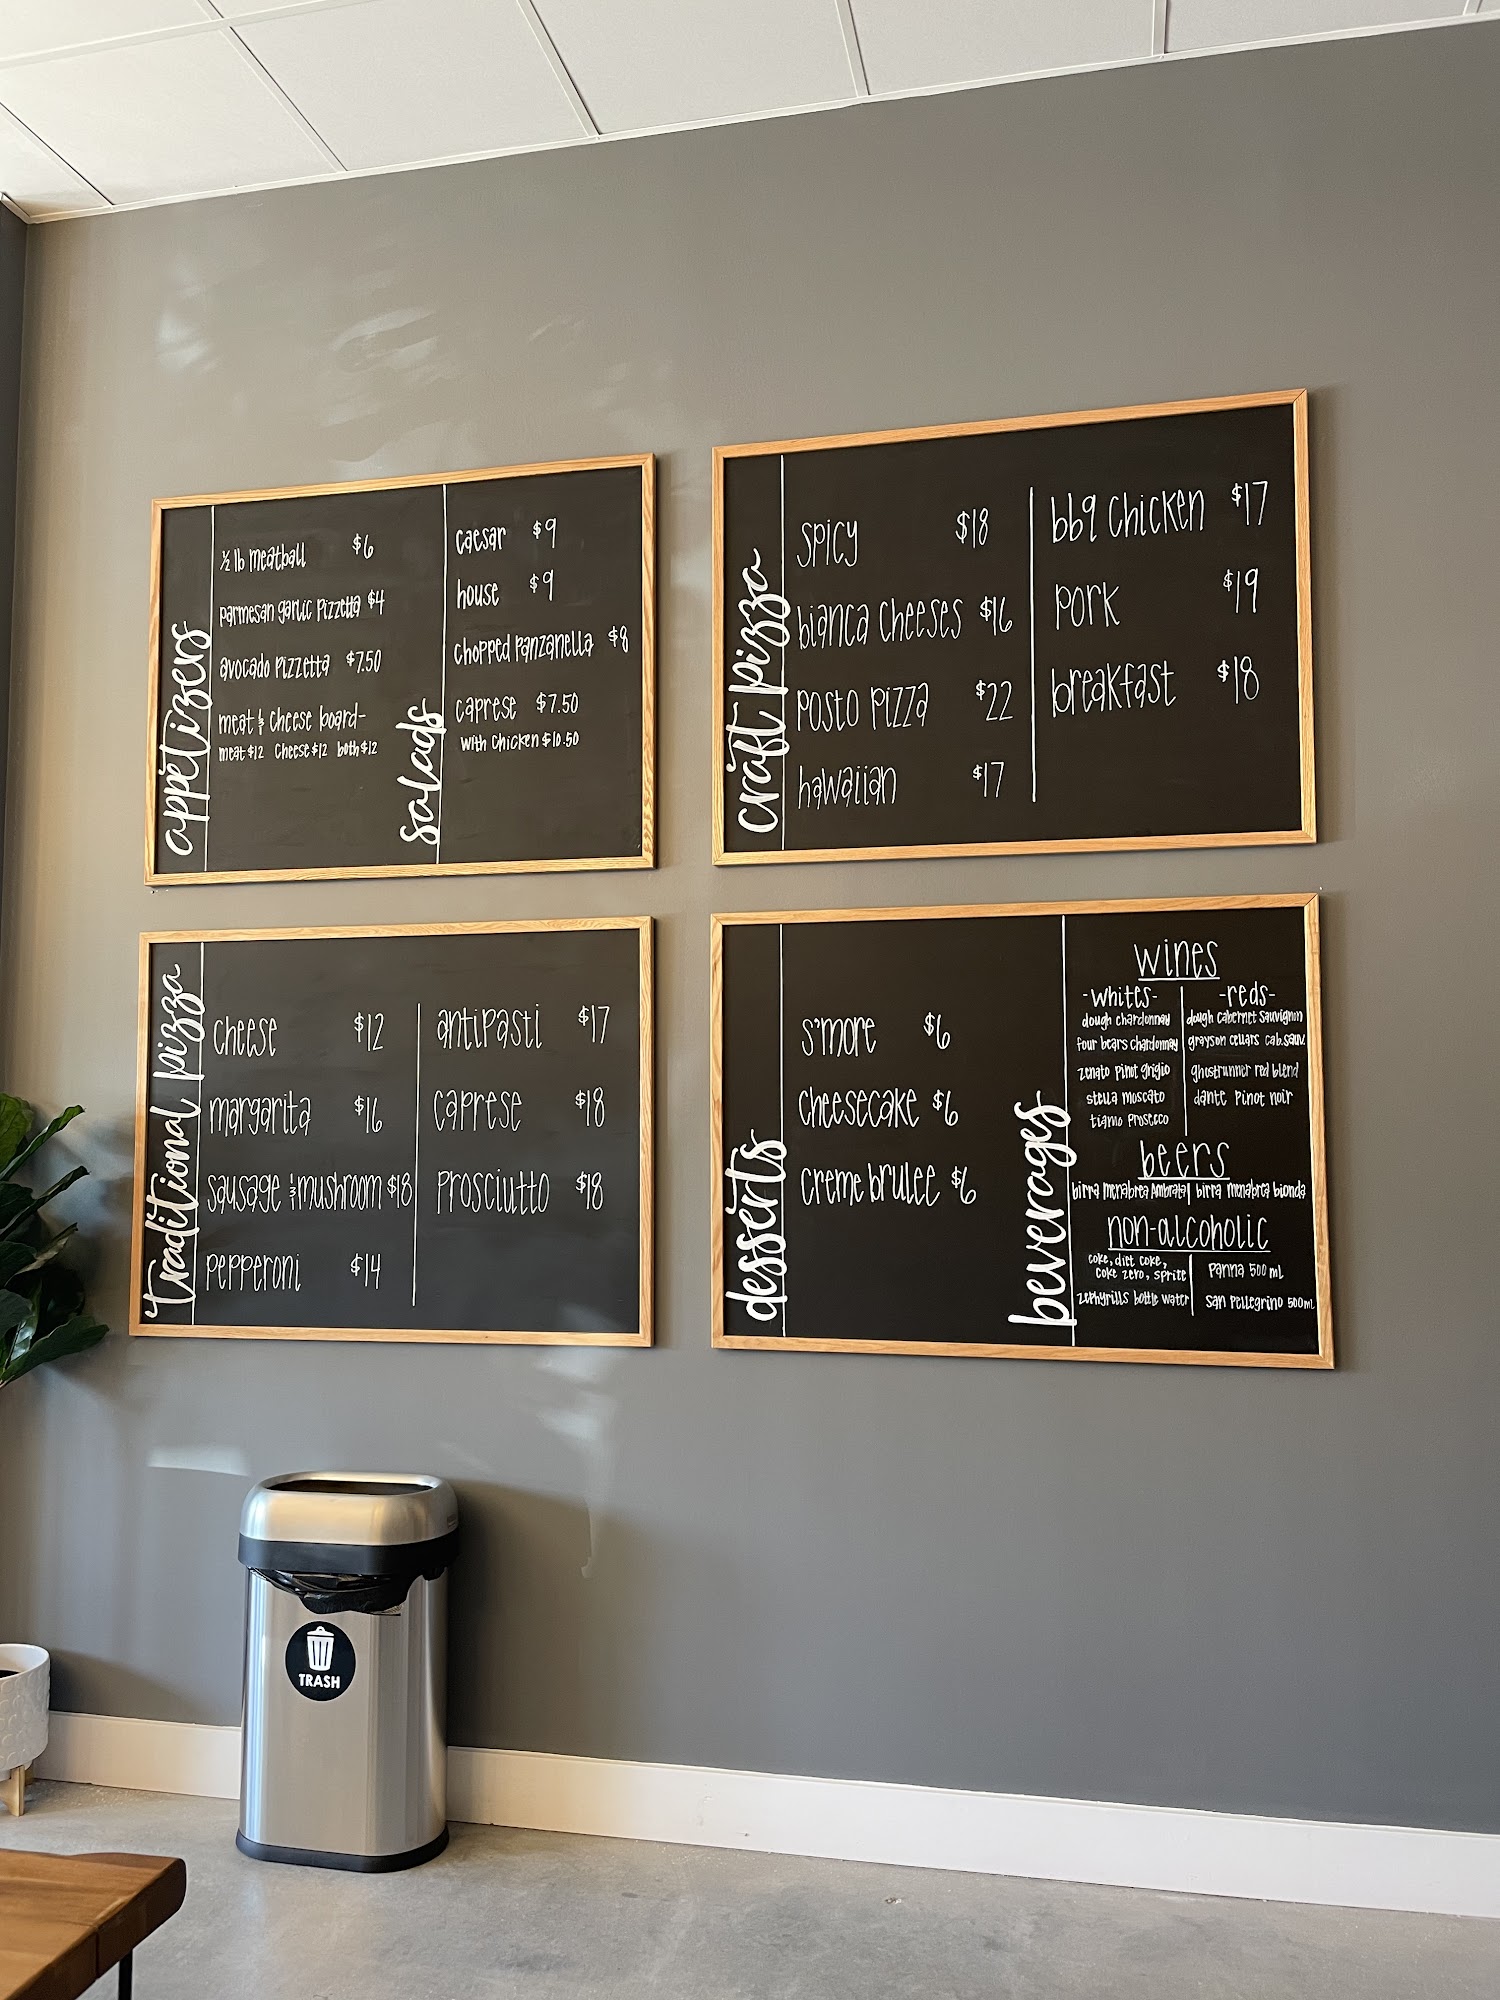 appetizers
½ lb meatball $6
parmesan garlic pizzetta $4
avocado pizzetta $7.50
meat & cheese board-
meat $12 cheese $12 both $12
salads
caesar $9
house $9
chopped panzanella $8
caprese $7.50
with chicken $10.50
craft pizza
spicy $18
bianca cheeses $16
posto pizza $22
hawaiian $17
bbq chicken $17
pork $19
breakfast $18
traditional pizza
cheese $12
margarita $16
sausage & mushroom $18
pepperoni $14
antipasti $17
caprese $18
prosciutto $18
desserts
s'more $6
cheesecake $6
creme brulee $6
beverages
wines
-whites-
dough chardonnay
four bears chardonnay
zenato pinot grigio
stella moscato
tiamo prosecco
-reds-
dough cabernet sauvignon
grayson cellars cab.sauv.
ghostrunner red blend
dante pinot noir
beers
birra menabrea ambrata | birra menabrea bionda
non-alcoholic
coke, diet coke,
coke zero, sprite
zephyrills bottle water
panna 500 mL
san pellegrino 500mL
TRASH